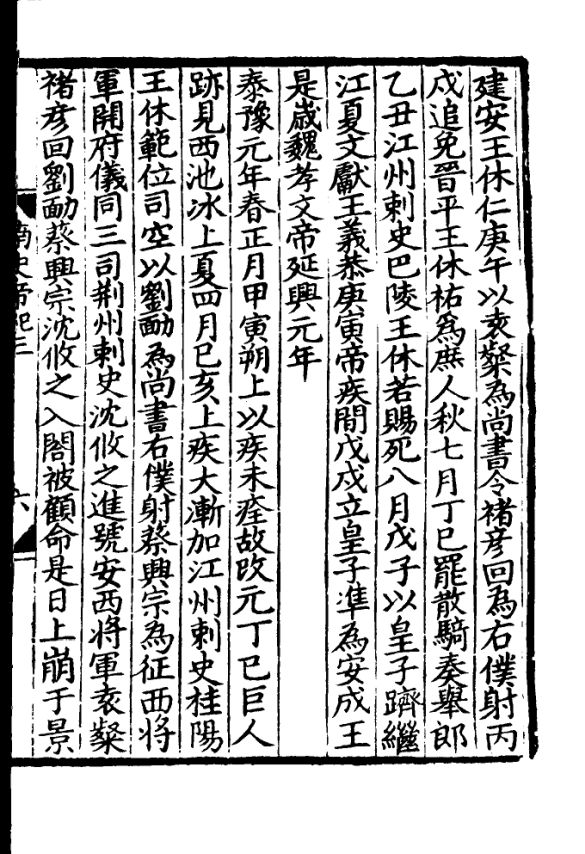 建安王休仁庚午以袁粲為尚書令褚彥回為右僕射丙
戍追免晉平王休祐爲庶人秋七月丁巳罷散騎奏舉郎
乙丑江州刺史巴陵王休若賜死八月戊子以皇子躋繼
江夏文獻王義恭庚寅帝疾間戊戍立皇子準為安成王
是歲魏孝文帝延興元年
泰豫元年春正月甲寅朔上以疾未痊故改元丁巳巨人
跡見西池冰上夏四月己亥上疾大漸加江州刺史桂陽
王休範位司空以劉勔為尚書右僕射蔡興宗為征西將
軍開府儀同三司荆州刺史沈攸之進號安西將軍袁粲
褚彥回劉勔蔡興宗沈攸之入閤被顧命是日上崩于景
南史帝紀三
六